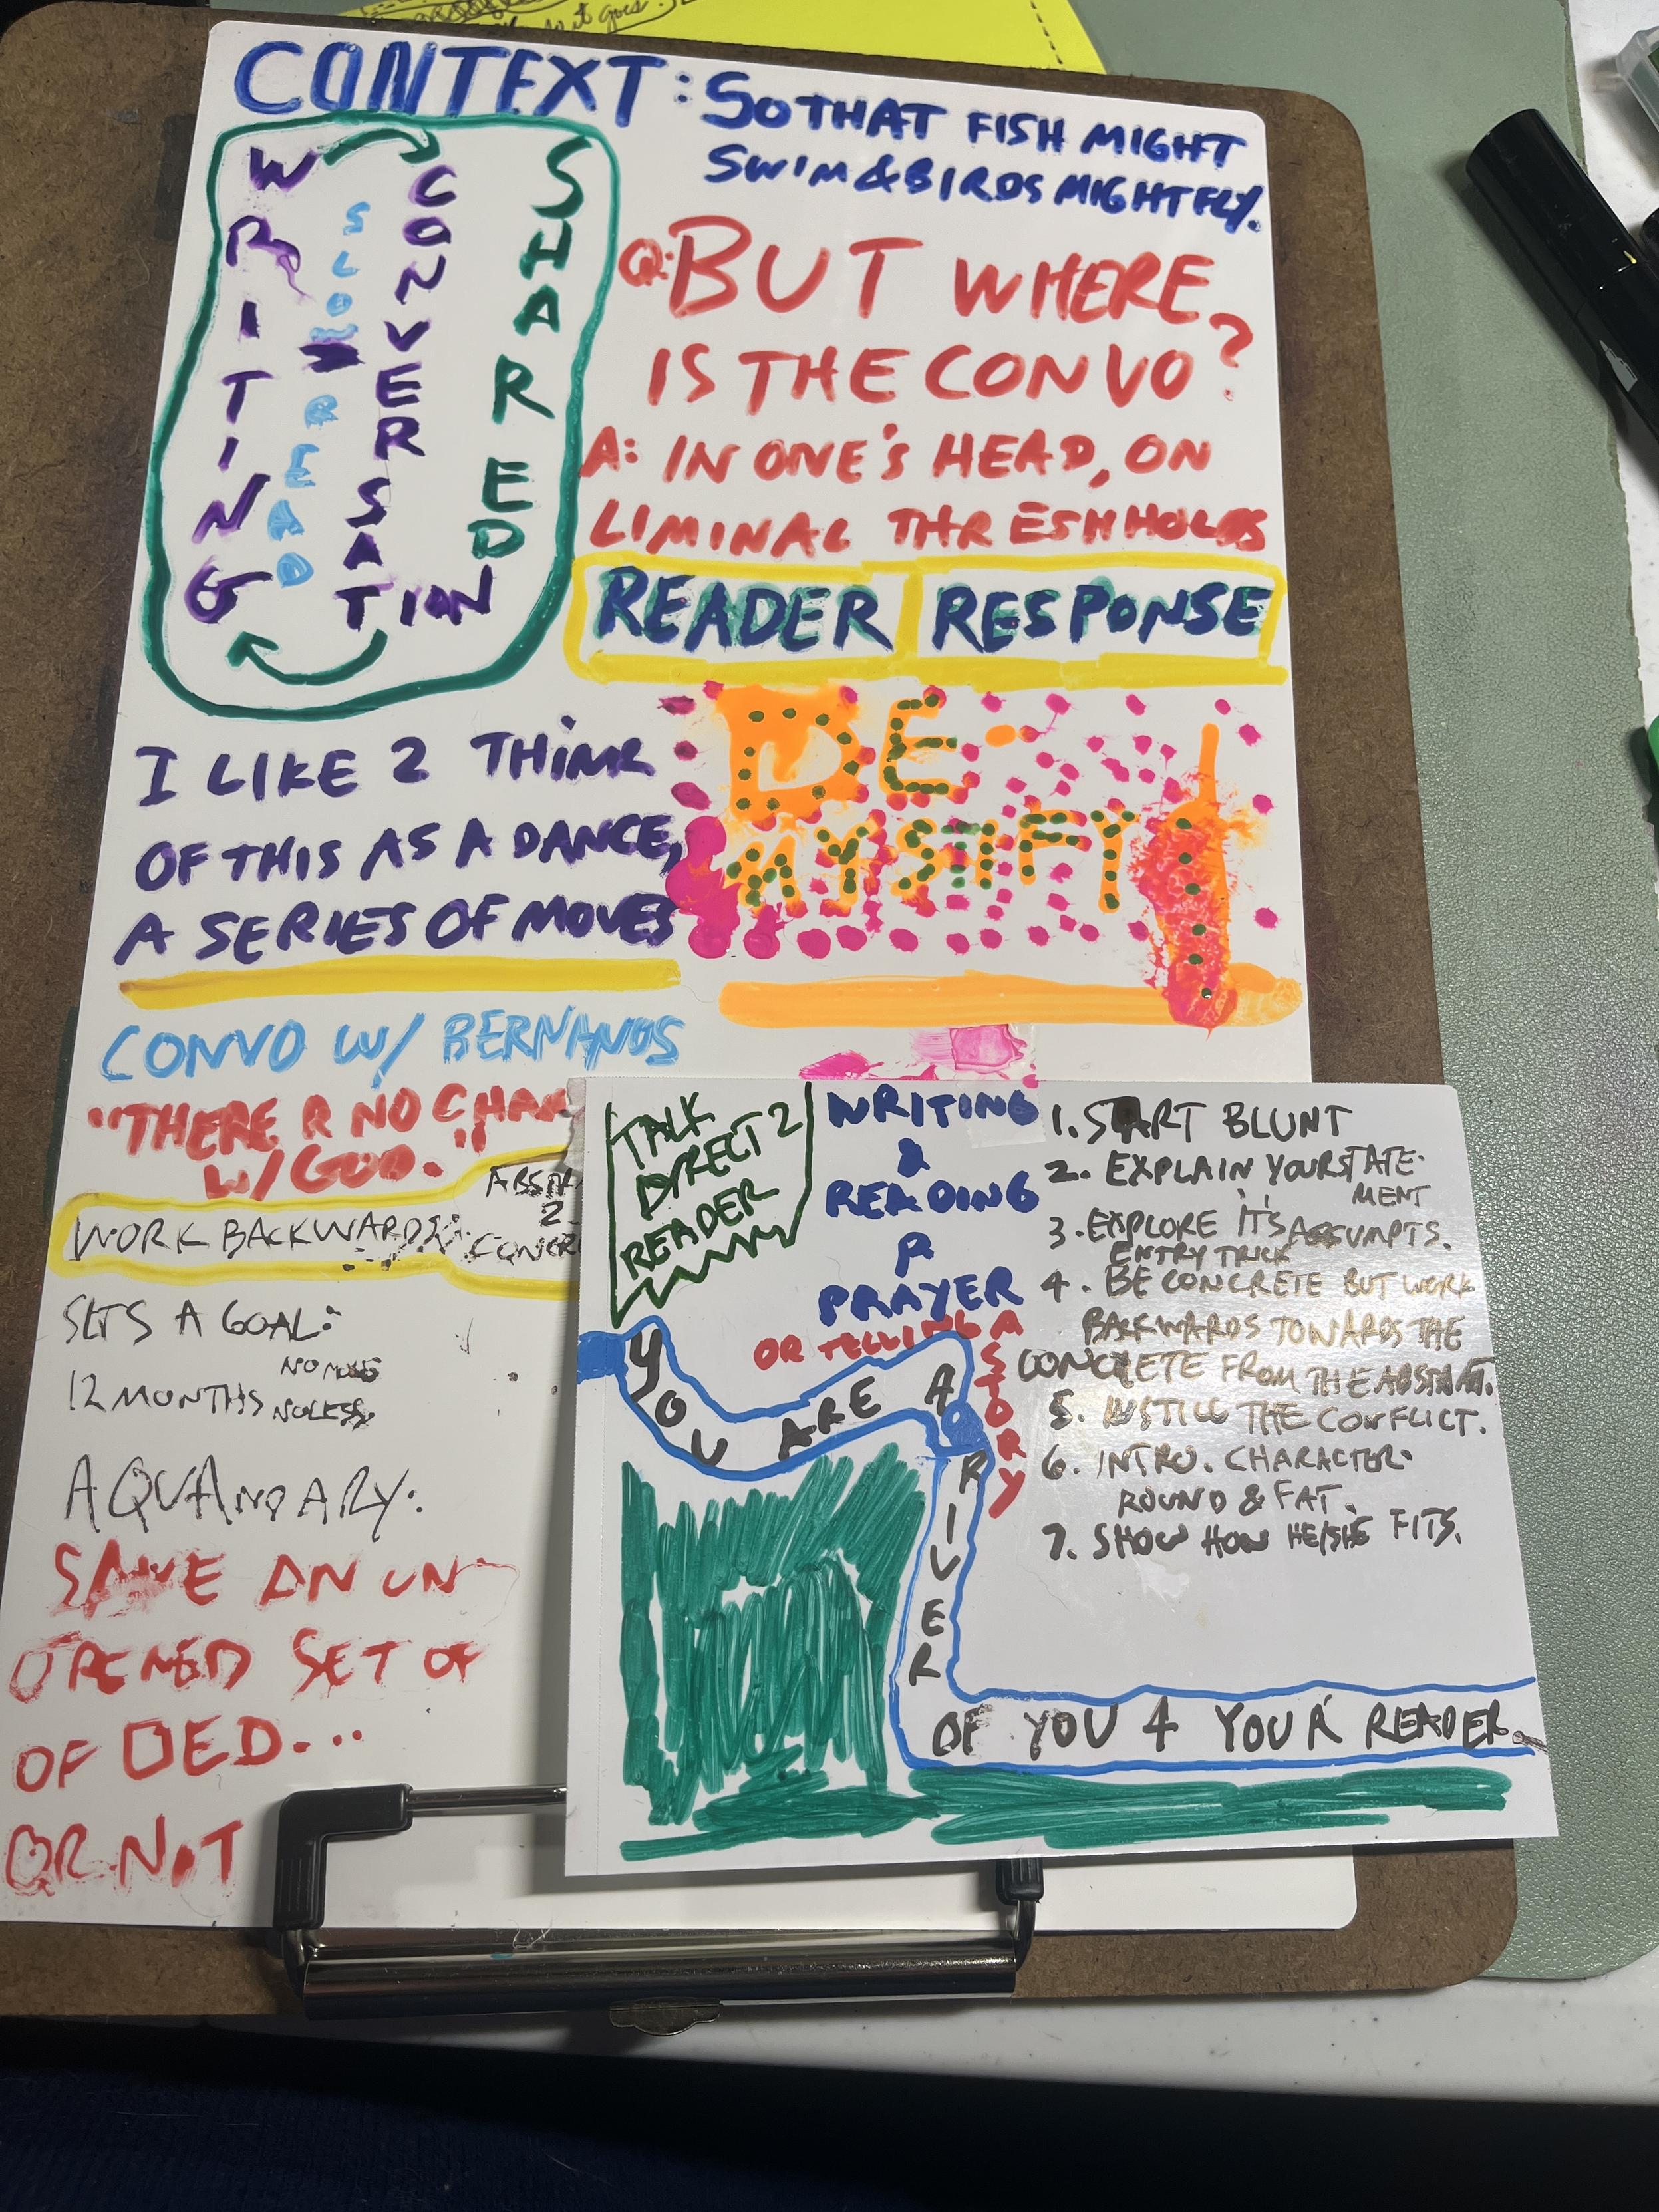 it goes.
CONTEXT: SO THAT FISH MIGHT
SWIM & BIRDS MIGHT FLY.
WRITING
SLOW READ
CONVERSATION
SHARED
Q: BUT WHERE
IS THE CONVO?
A: IN ONE'S HEAD, ON
LIMINAL THRESHHOLDS
READER RESPONSE
I LIKE 2 THINK
OF THIS AS A DANCE,
A SERIES OF MOVES
DE-
MYSTIFY
CONVO W/ BERNANOS
"THERE R NO CHAN
W/GOD."
WORK BACKWARDS:
ABSTRA
2-
CONCRE
SETS A GOAL:
12 MONTHS NO MORE
NO LESS.
AQUANDARY:
SAVE AN UN-
OPENED SET OF
OF DED...
OR NOT
TALK
DIRECT 2
READER
WRITING
&
READING
A
PRAYER
OR TELLING A STORY
YOU ARE A RIVER
OF YOU 4 YOUR READER.
1. START BLUNT
2. EXPLAIN YOUR STATE-
MENT
3. EXPLORE IT'S ASSUMPTS.
ENTRY TRICK
4. BE CONCRETE BUT WORK
BACKWARDS TOWARDS THE
CONCRETE FROM THE ABSTRAT.
5. INSTILL THE CONFLICT.
6. INTRO. CHARACTER.
ROUND & FAT.
7. SHOW HOW HE/SHE FITS.